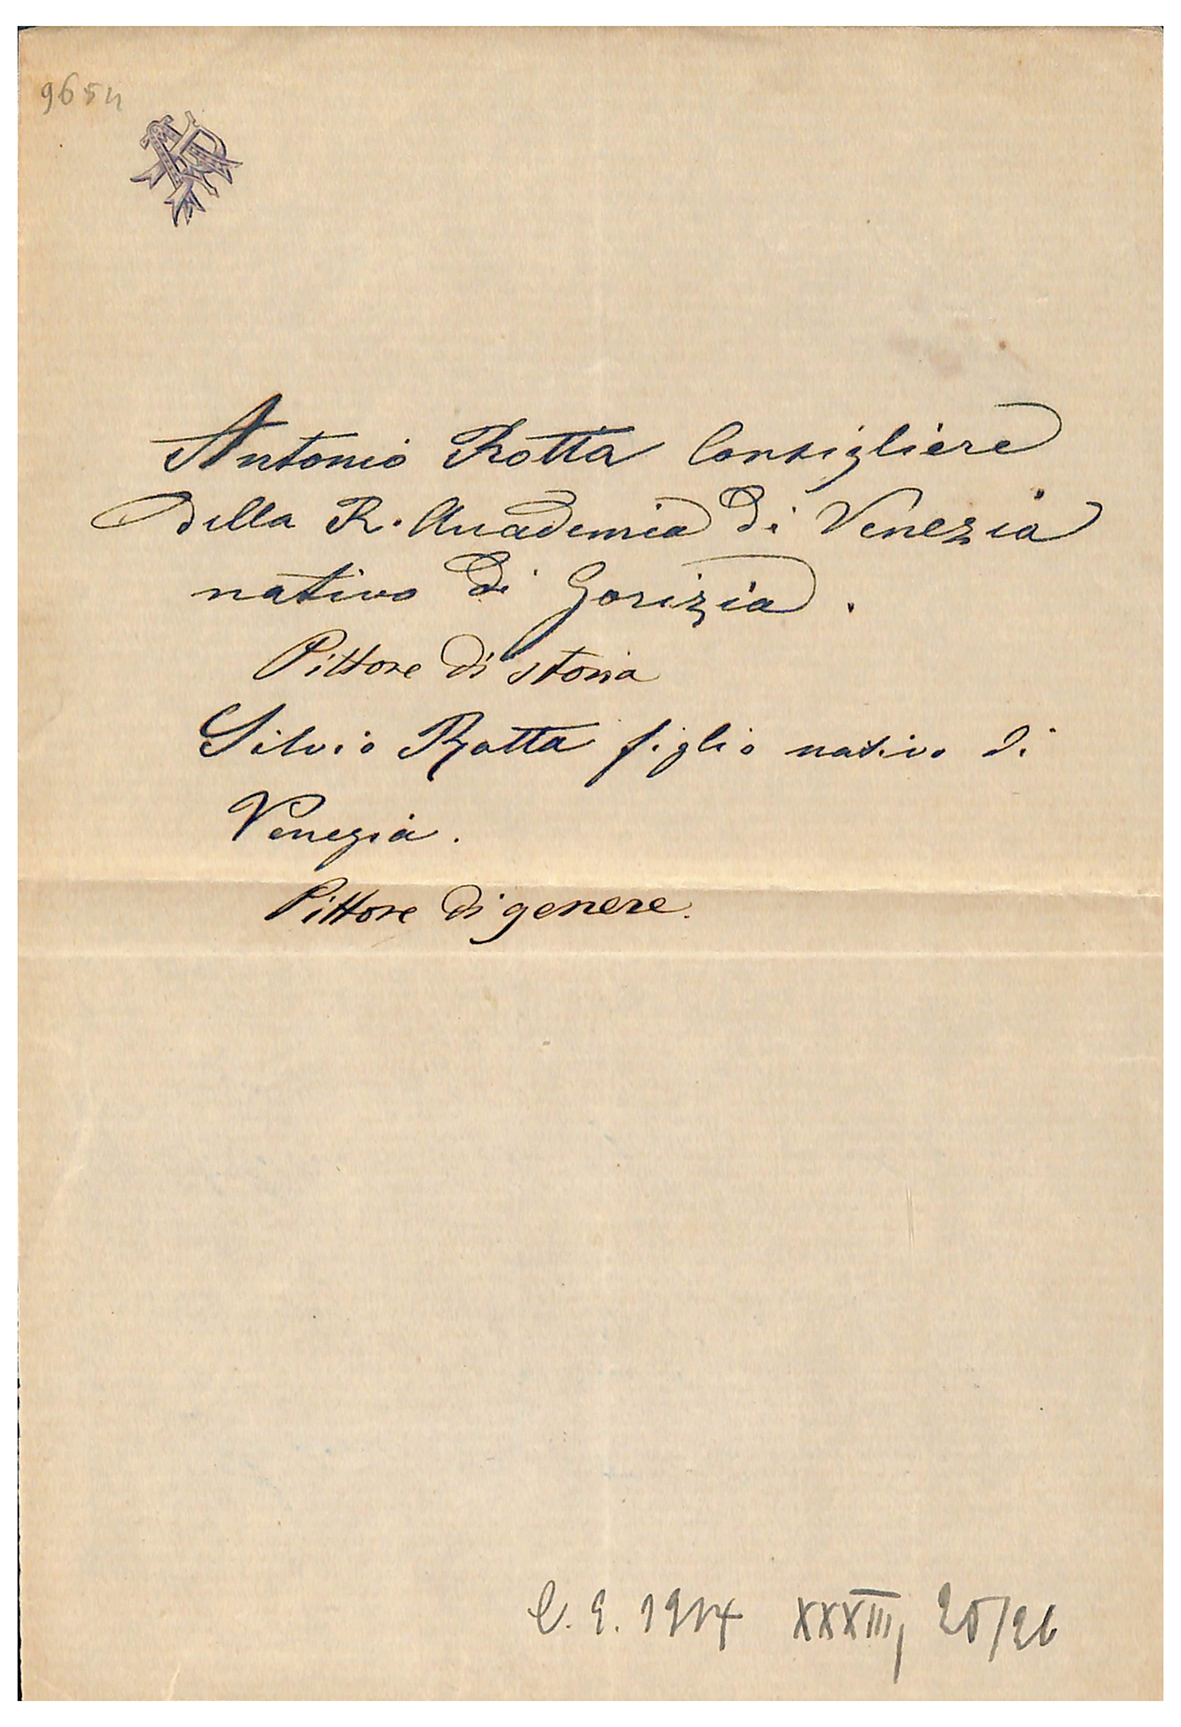 9654
AR
Antonio Rotta Consigliere
della R. Accademia di Venezia
nativo di Gorizia.
Pittore di storia
Silvio Rotta figlio nativo di
Venezia.
Pittore di genere.
1914 XXXIII, 25/26